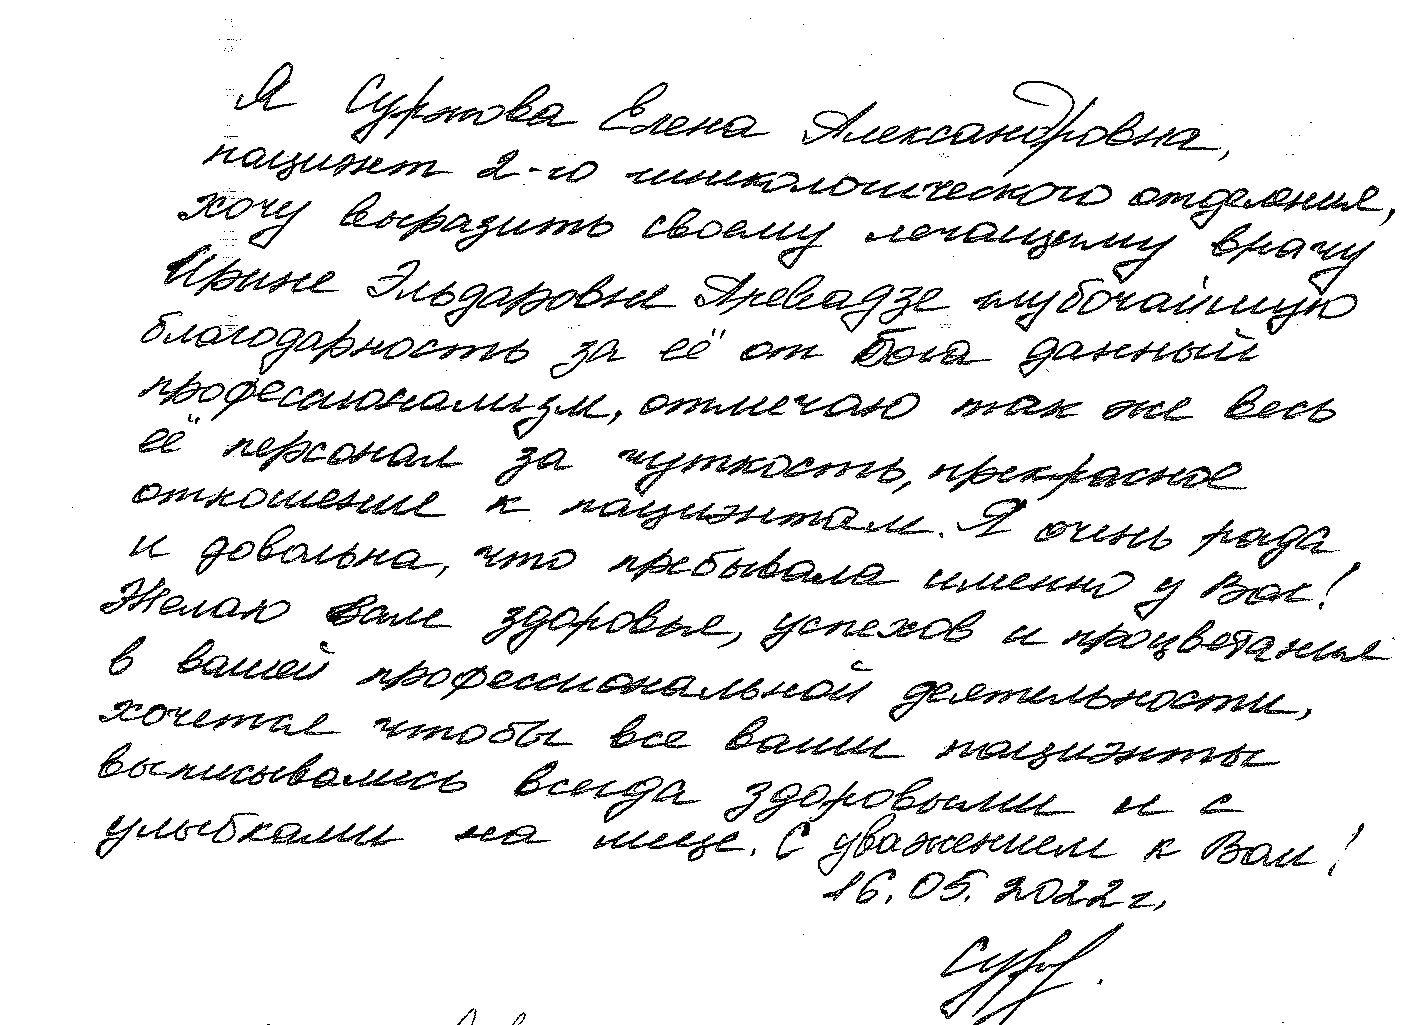 Я Суркова Елена Александровна,
пациент 2-го гинекологического отделения,
хочу выразить своему лечащему врачу
Ирине Эльдаровне глубочайшую
благодарность за её от Бога данный
профессионализм, отмечаю так же весь
её персонал за чуткость, прекрасное
отношение к пациэнтам. Я очень рада
и довольна, что пребывала именно у Вас!
Желаю Вам здоровья, успехов и процветания
в вашей профессиональной деятельности,
хочется чтобы все ваши пациэнты
выписывались всегда здоровыми и с
улыбками на лице. С уважением к Вам!
16.05.2022г.